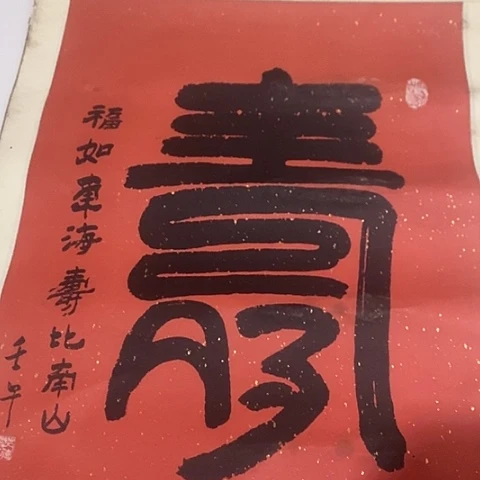 壽
福如東海壽比南山
壬午